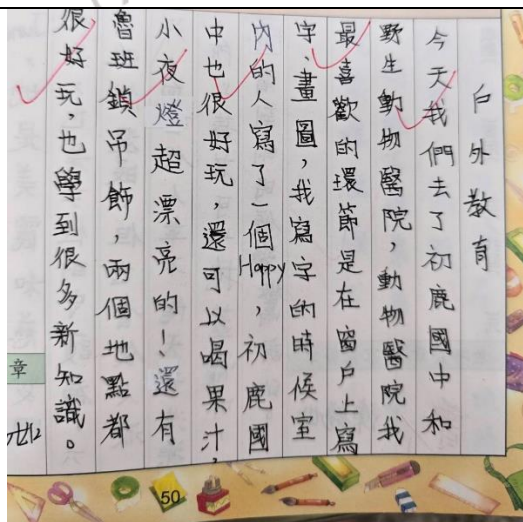 戶外教育
今天我們去了初鹿國中和
野生動物醫院,動物醫院我
最喜歡的環節是在窗戶上寫
字、畫圖,我寫字的時候室
內的人寫了一個Happy,初鹿國
中也很好玩,還可以喝果汁,
小夜燈超漂亮的!還有
魯班鎖吊飾,兩個地點都
很好玩,也學到很多新知識。
章
50